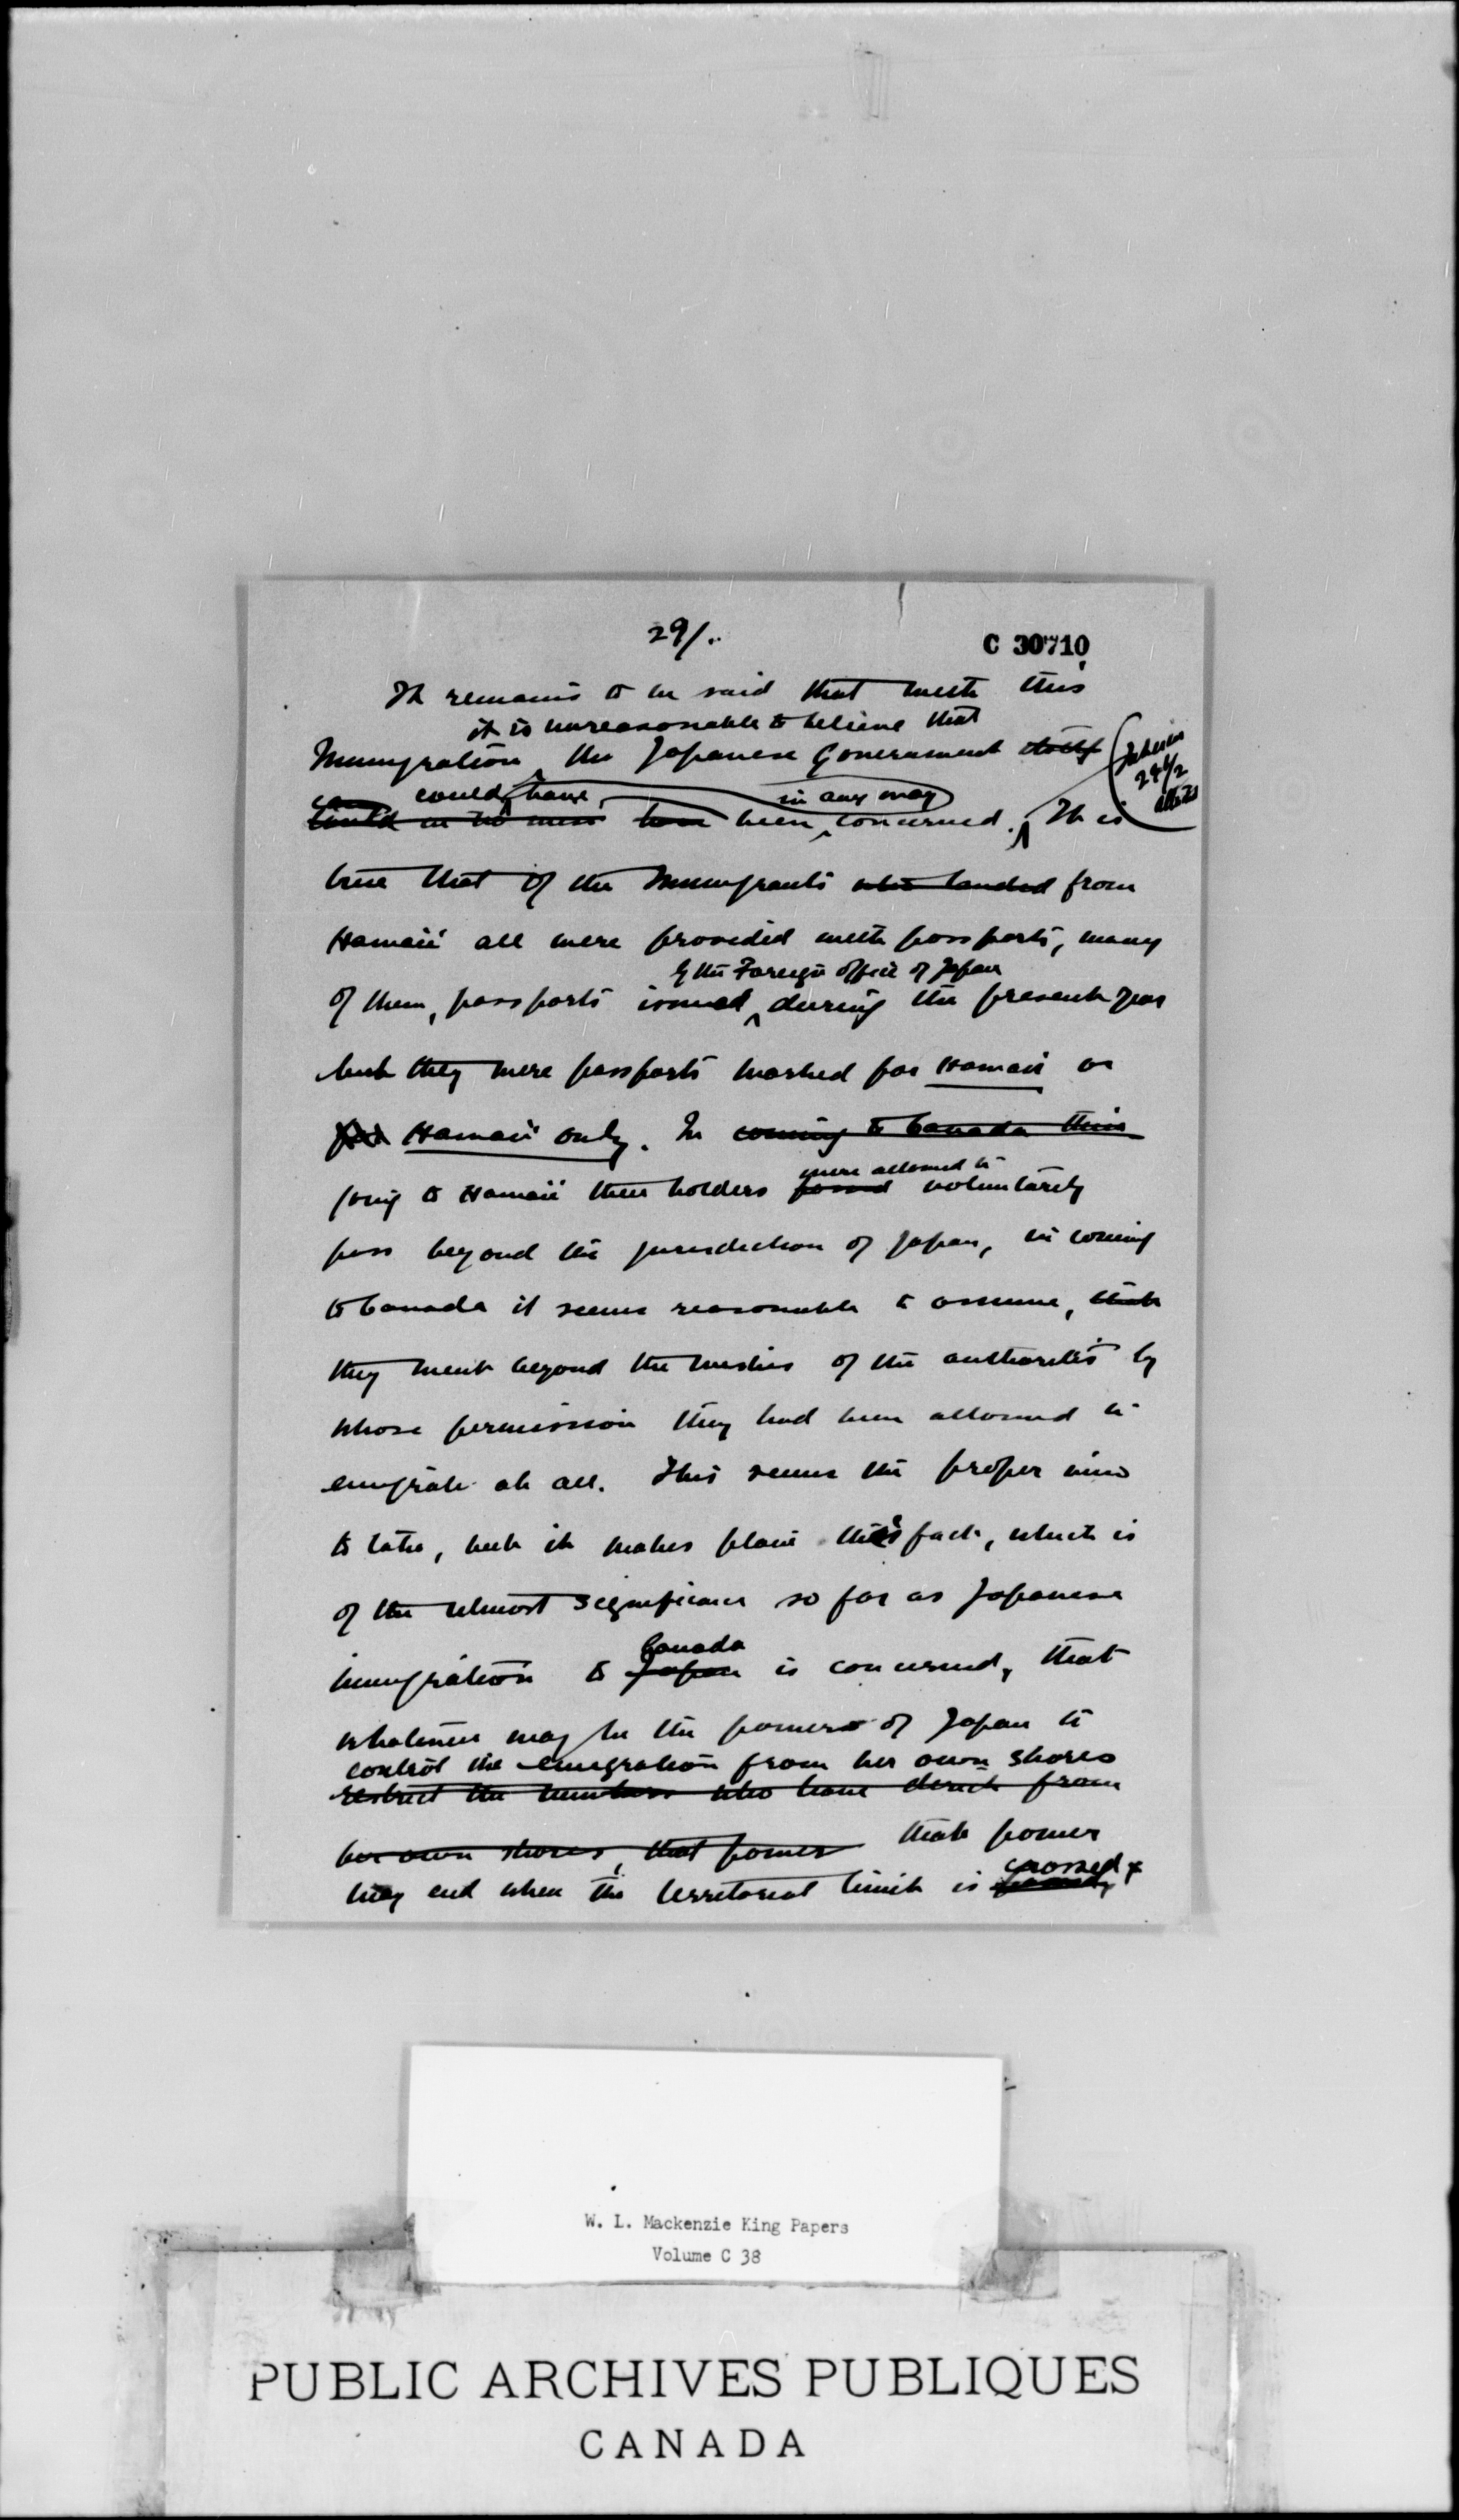 29/.
C 30710
It remains to be said that with this
it is unreasonable to believe that
Immigration the Japanese Government itself
could have in any way
could in no wise have been concerned. It is
true that of the Immigrants who landed from
Hawaii all were provided with passports, many
by the Foreign Office of Japan
of them, passports issued during the present year
but they were passports marked for Hawaii or
for Hawaii only. In coming to Canada this
going to Hawaii their holders were allowed to
voluntarily
pass beyond the jurisdiction of Japan, in coming
to Canada it seems reasonable to assume, that
they went beyond the wishes of the authorities by
whose permission they had been allowed to
emigrate at all. This seems the proper view
to take, but it makes plain this fact, which is
of the utmost significance so far as Japanese
Canada
immigration to Japan is concerned, that
whatever may be the powers of Japan to
control the emigration from her own shores
restrict the numbers who leave direct from
her own shores, that power that power
may end when the territorial limit is crossed &
W. L. Mackenzie King Papers
Volume C 38
PUBLIC ARCHIVES PUBLIQUES
CANADA